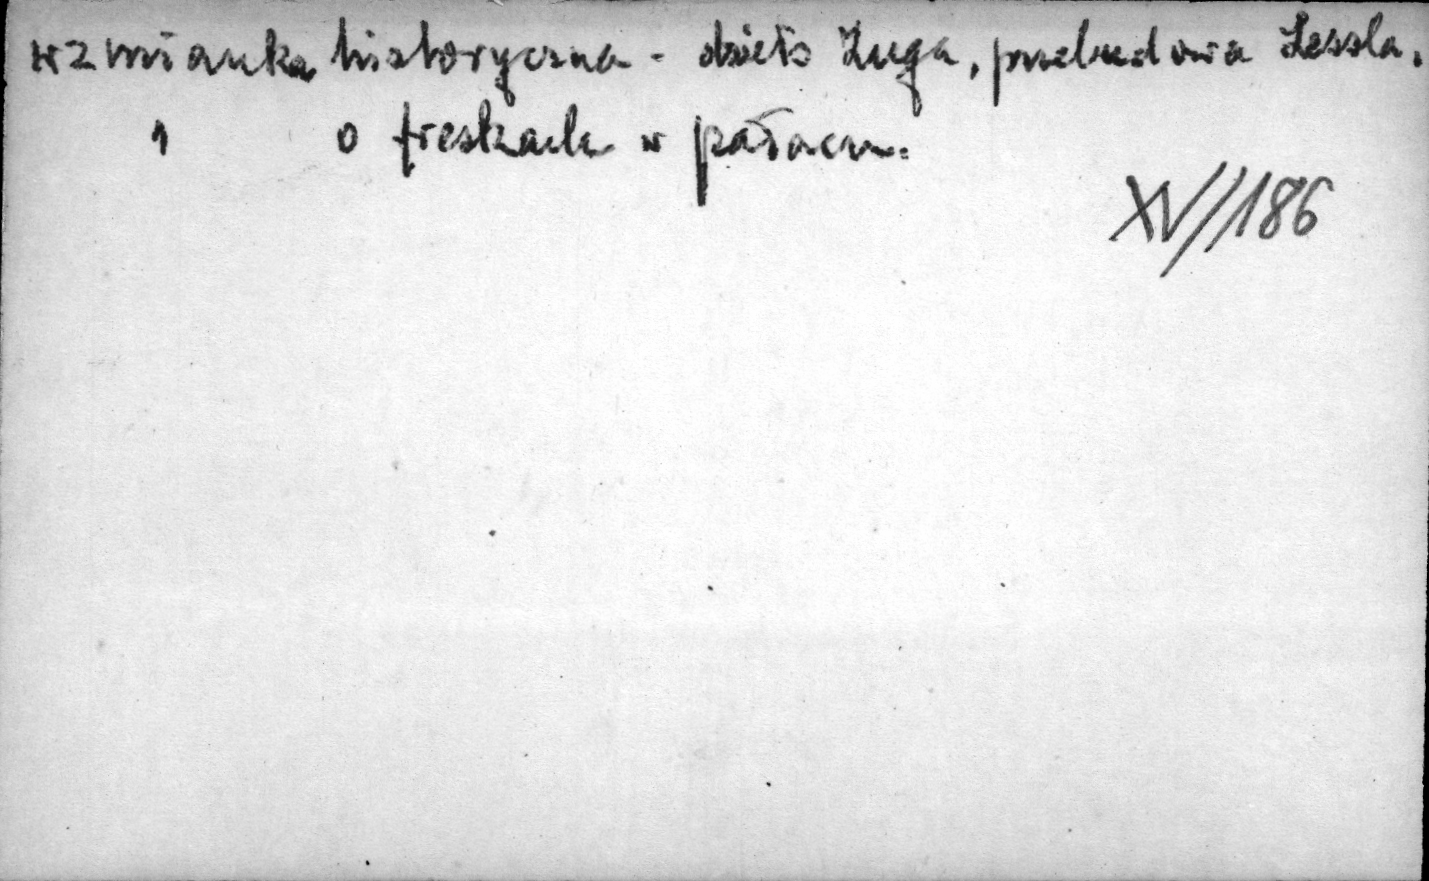 wzmianka historyczna - dzieło Zuga, przebudowa Lessla.
" o freskach w pałacu.
XV//186